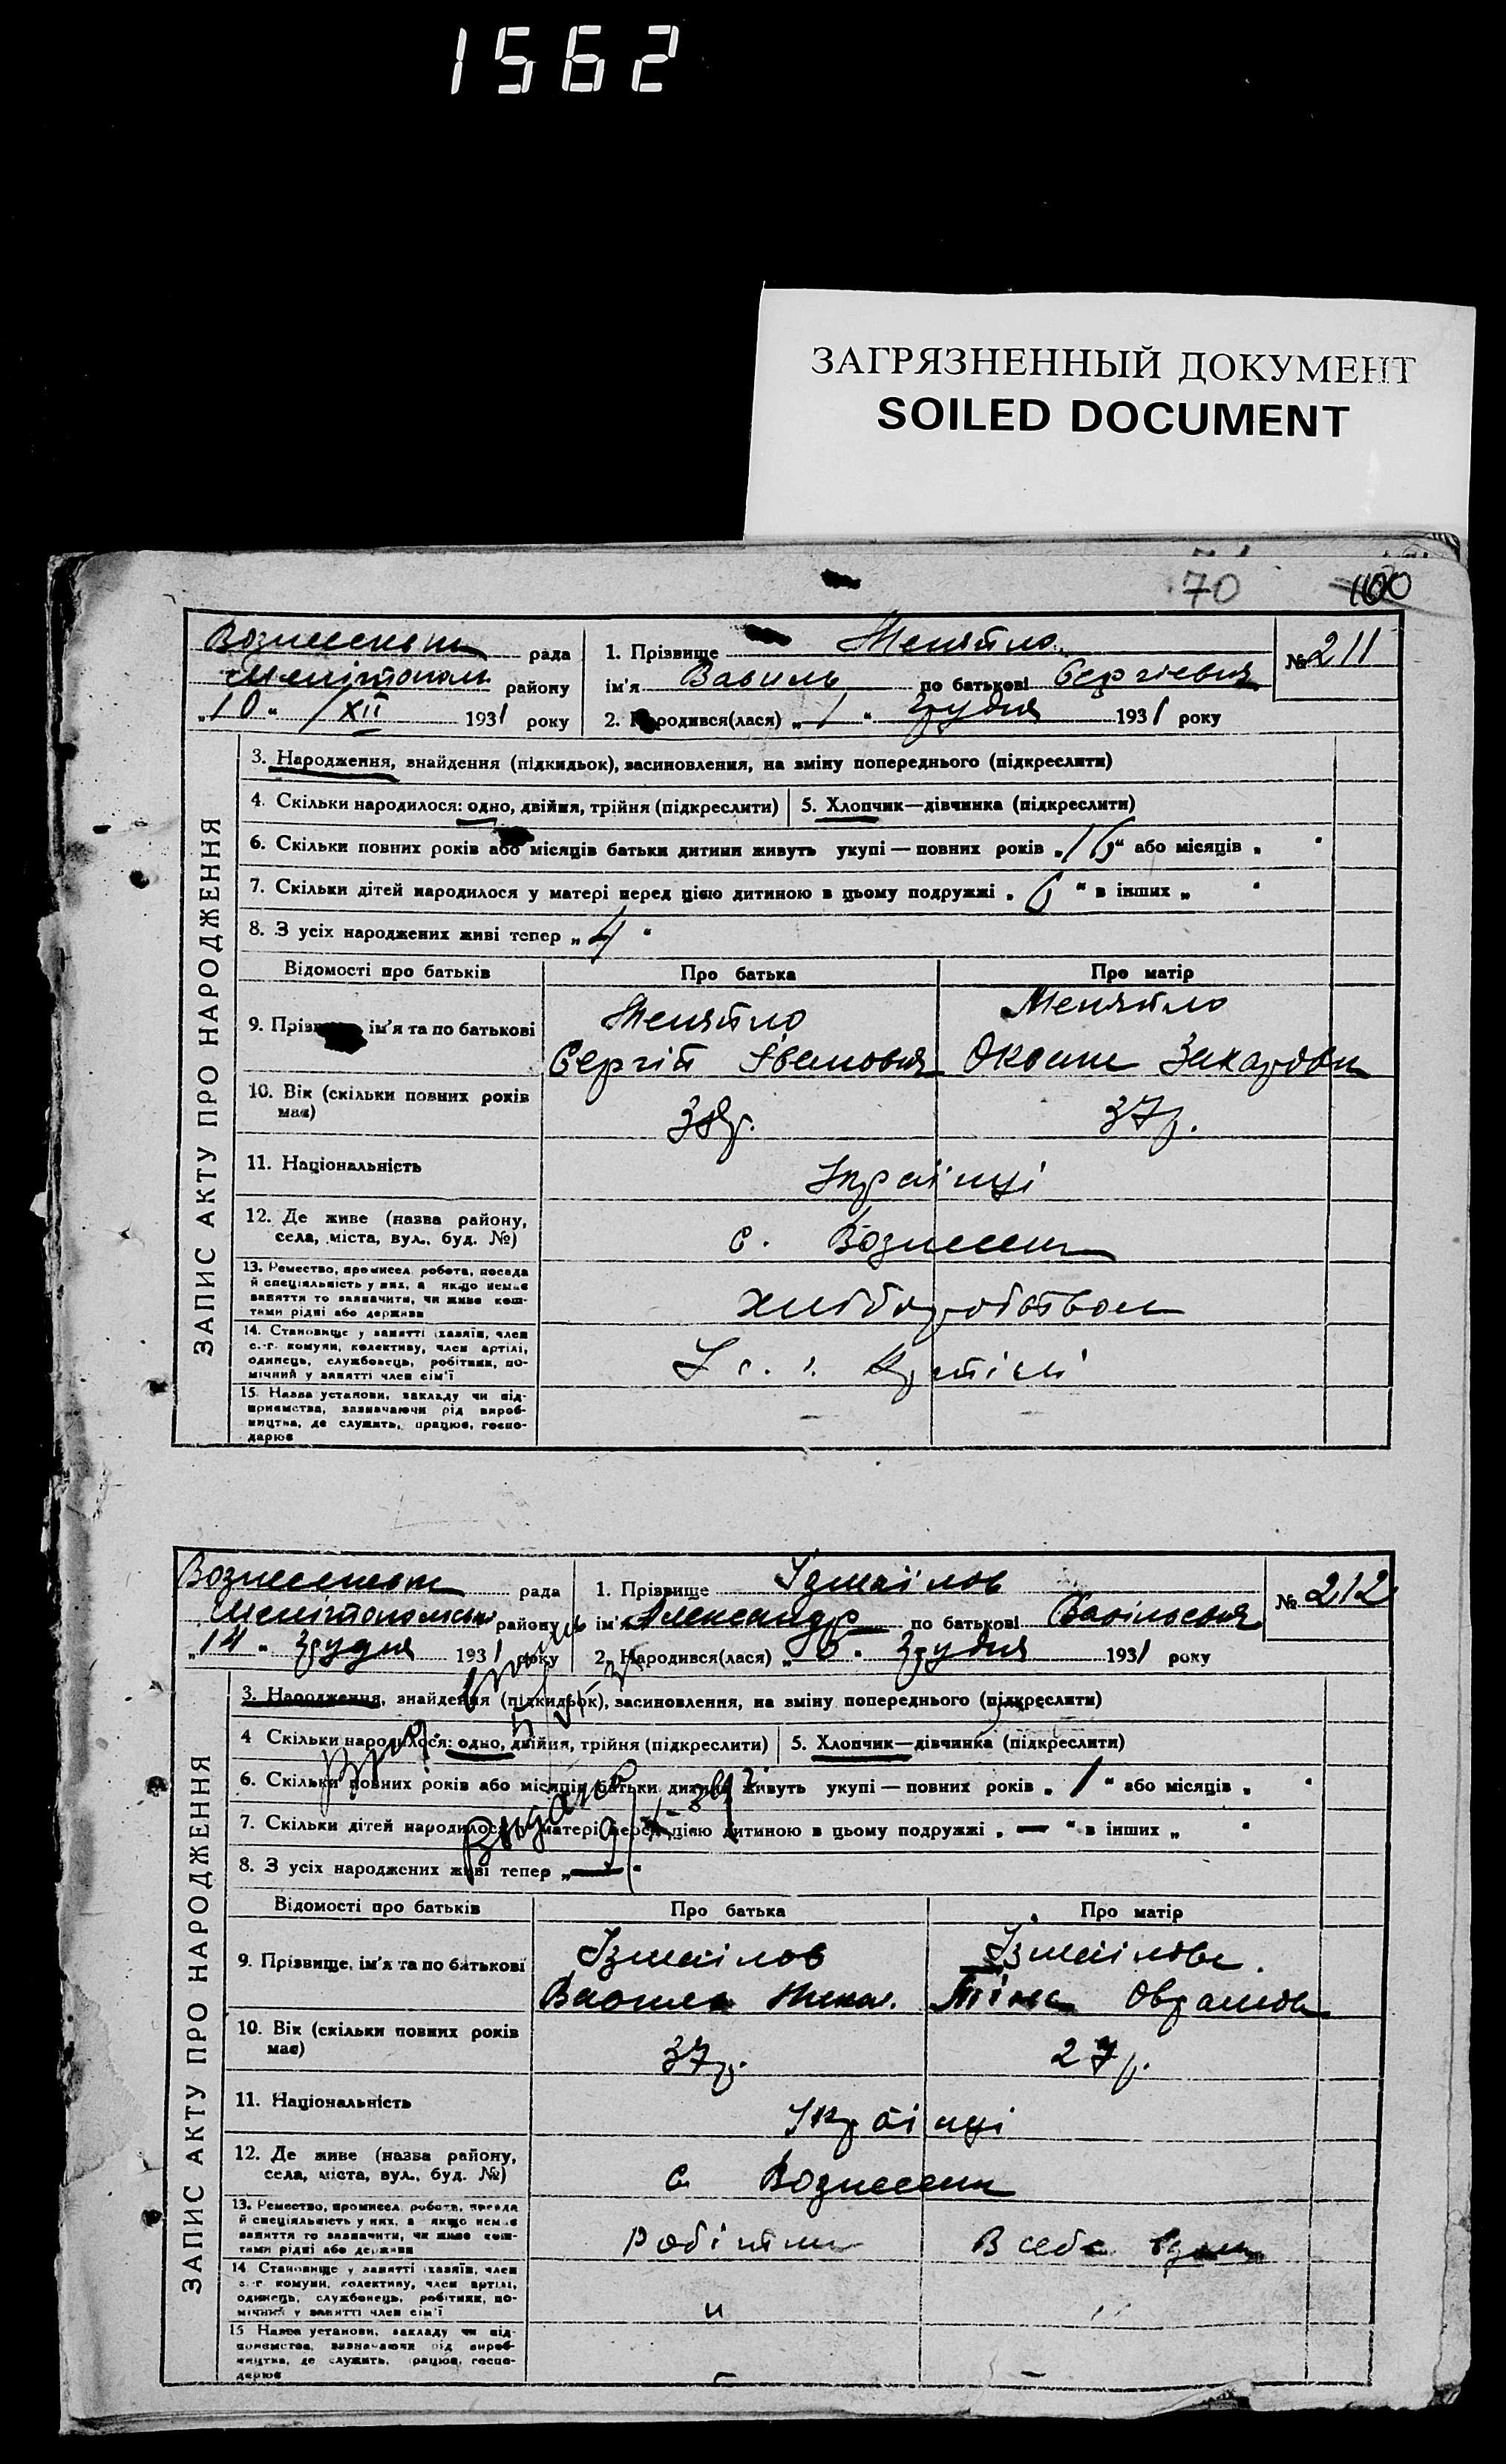 1562
ЗАГРЯЗНЕННЫЙ ДОКУМЕНТ
SOILED DOCUMENT
70 100
ЗАПИС АКТУ ПРО НАРОДЖЕННЯ
рада 1. Прізвище Меняйло № 211
Мелітополь району ім'я Василь по батькові Сергієвич
„10" /XII 1931 року 2. Народився(лася) „1" Грудня 1931 року
3. Народження, знайдення (підкидьок), засиновлення, на зміну попереднього (підкреслити)
4. Скільки народилося: одно, двійня, трійня (підкреслити) 5. Хлопчик—дівчинка (підкреслити)
6. Скільки повних років або місяців батьки дитини живуть укупі — повних років „16" або місяців „ "
7. Скільки дітей народилося у матері перед цією дитиною в цьому подружжі „6" в інших „ "
8. З усіх народжених живі тепер „4"
Відомості про батьків Про батька Про матір
Меняйло Меняйло
9. Прізвище, ім'я та по батькові
Сергій Іванович Оксана
10. Вік (скільки повних років
має) 38р. 37р.
11. Національність Українці
12. Де живе (назва району,
села, міста, вул., буд. №) с. Вознесен
13. Ремество, промисел, робота, посада
й спеціяльність у них, а якщо немає
заняття то зазначити, чи живе кош-
тами рідні або держави хліборобством
14. Становище у занятті (хазяїн, член
с.-г. комуни, колективу, член артілі,
одинець, службовець, робітник, по-
мічний у занятті член сім'ї
15. Назва установи, закладу чи під-
приємства, зазначаючи рід вироб-
ництва, де служить, працює, госпо-
дарює
ЗАПИС АКТУ ПРО НАРОДЖЕННЯ
рада 1. Прізвище Ізмаілов № 212
району ім'я Александр по батькові Васільевич
„14" Грудня 1931 року 2. Народився(лася) „5" Грудня 1931 року
3. Народження, знайдення (підкидьок), засиновлення, на зміну попереднього (підкреслити)
4 Скільки народилося: одно, двійня, трійня (підкреслити) 5. Хлопчик—дівчинка (підкреслити)
6. Скільки повних років або місяців батьки дитини живуть укупі — повних років „1" або місяців „ "
7. Скільки дітей народилося у матері перед цією дитиною в цьому подружжі „—" в інших „ "
8. З усіх народжених живі тепер „—"
Відомості про батьків Про батька Про матір
Ізмаілов Ізмаілова
9. Прізвище, ім'я та по батькові
Василь
10. Вік (скільки повних років
має) 37р. 27р.
11. Національність Українці
12. Де живе (назва району,
села, міста, вул., буд. №) с Вознесен
13. Ремество, промисел, робота, посада
й спеціяльність у них, а якщо немає
заняття то зазначити, чи живе кош-
тами рідні або держави Робітник В себе
14. Становище у занятті (хазяїн, член
с.-г. комуни, колективу, член артілі,
одинець, службовець, робітник, по-
мічний у занятті член сім'ї
15 Назва установи, закладу чи під-
приємства, зазначаючи рід вироб-
ництва, де служить, працює, госпо-
дарює